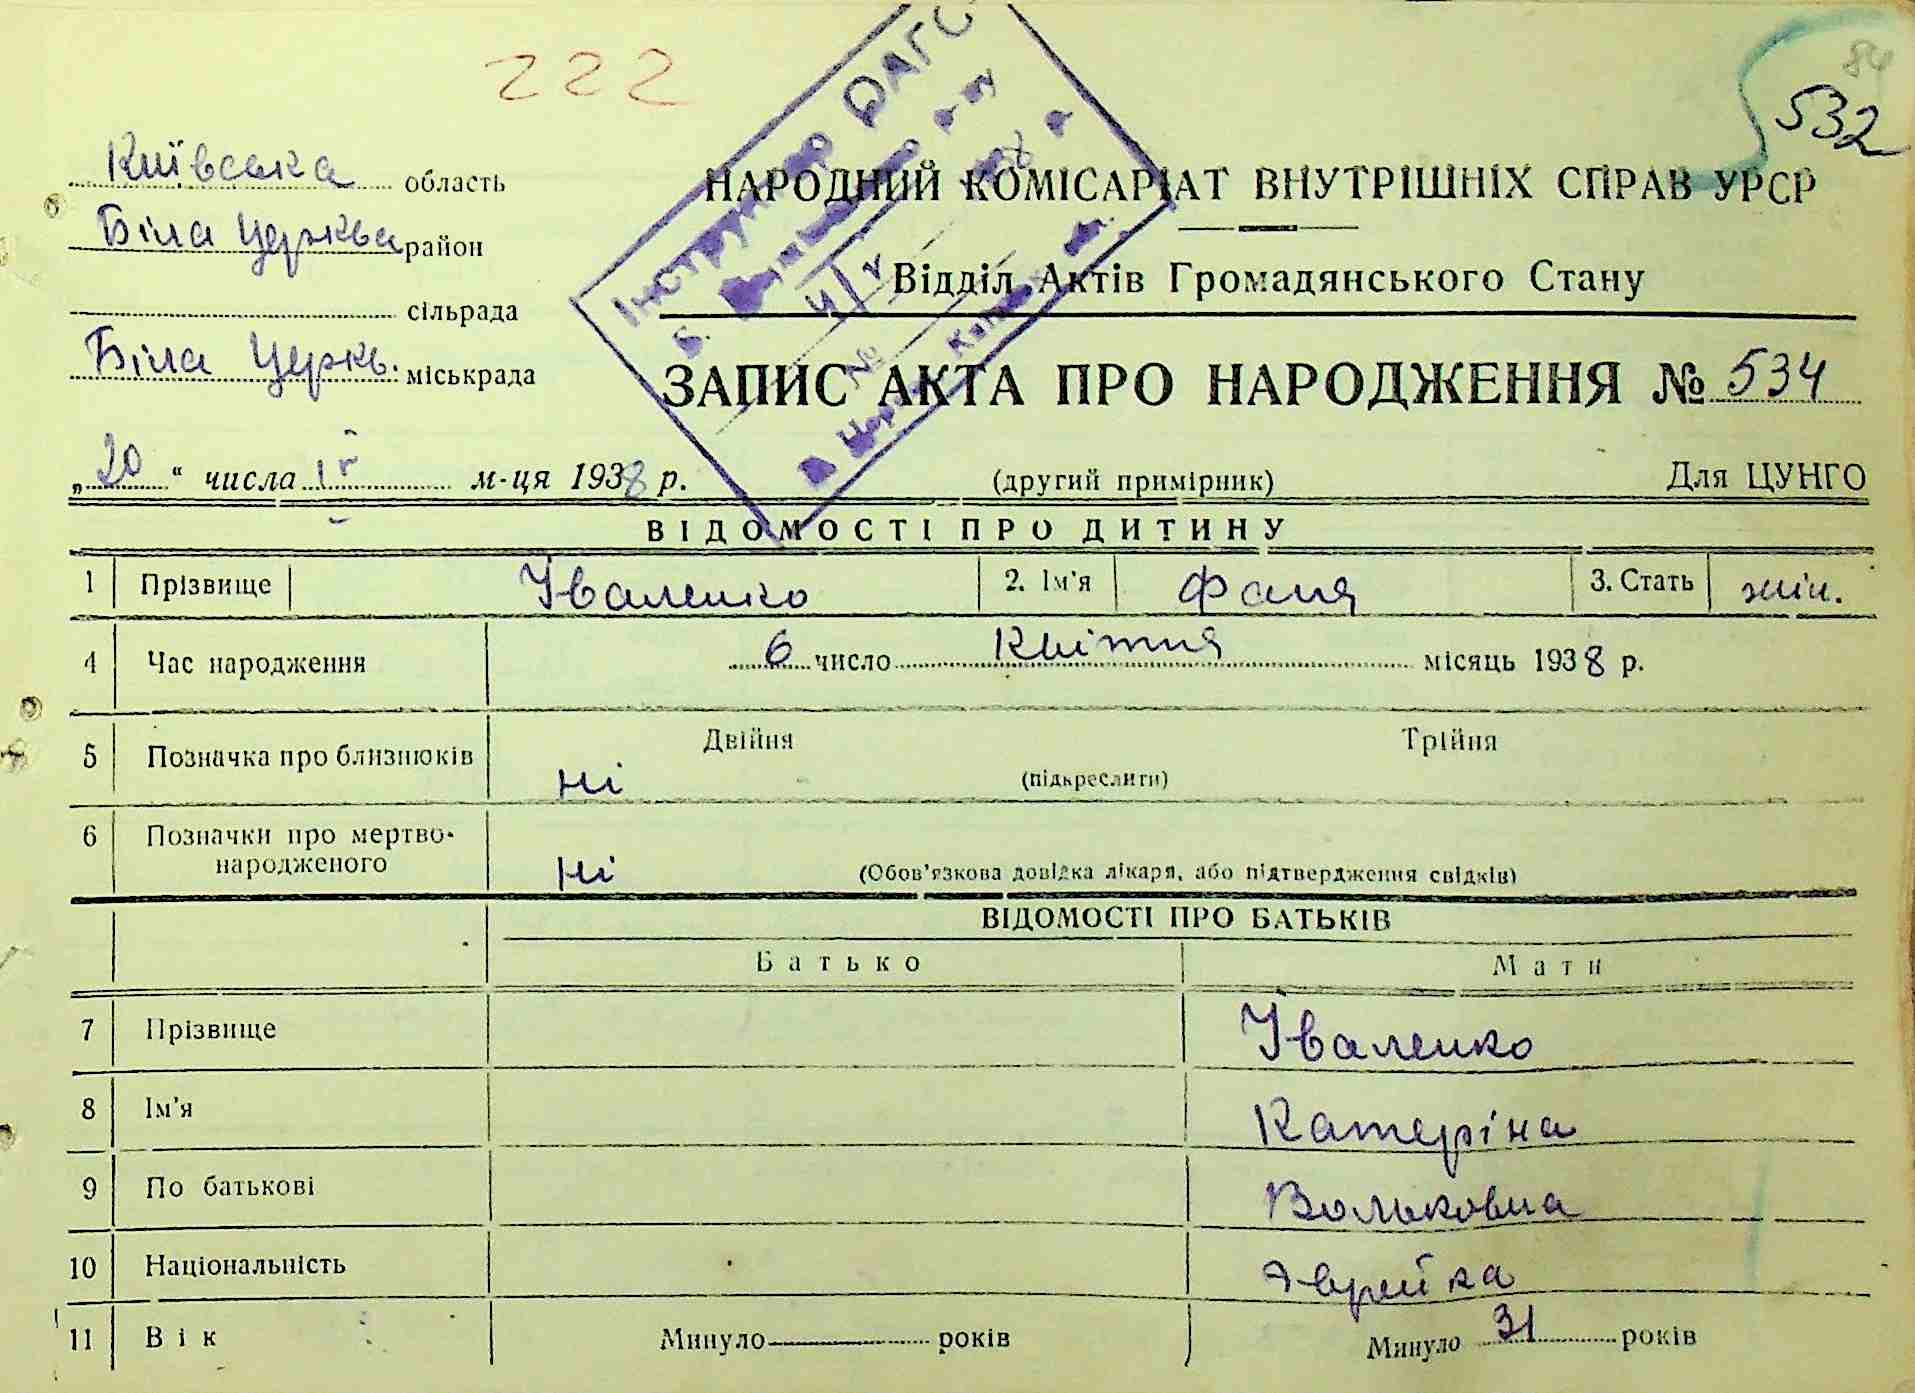 222
84
532
Київська область
Біла Церква район
сільрада
Біла Церкв. міськрада
Інструктор ВАГС
№
НАРОДНИЙ КОМІСАРІАТ ВНУТРІШНІХ СПРАВ УРСР
Відділ Актів Громадянського Стану
ЗАПИС АКТА ПРО НАРОДЖЕННЯ № 534
„20“ числа IV м-ця 1938 р. (другий примірник) Для ЦУНГО
ВІДОМОСТІ ПРО ДИТИНУ
1 Прізвище Іваленко 2. Ім'я Фаня 3. Стать жін.
4 Час народження 6 число Квітня місяць 1938 р.
5 Позначка про близнюків Двійня Трійня
ні (підкреслити)
6 Позначки про мертво-
народженого ні (Обов'язкова довідка лікаря, або підтвердження свідків)
ВІДОМОСТІ ПРО БАТЬКІВ
Батько Мати
7 Прізвище Іваленко
8 Ім'я Катеріна
9 По батькові Вольковна
10 Національність Эврейка
11 Вік Минуло років Минуло 31 років